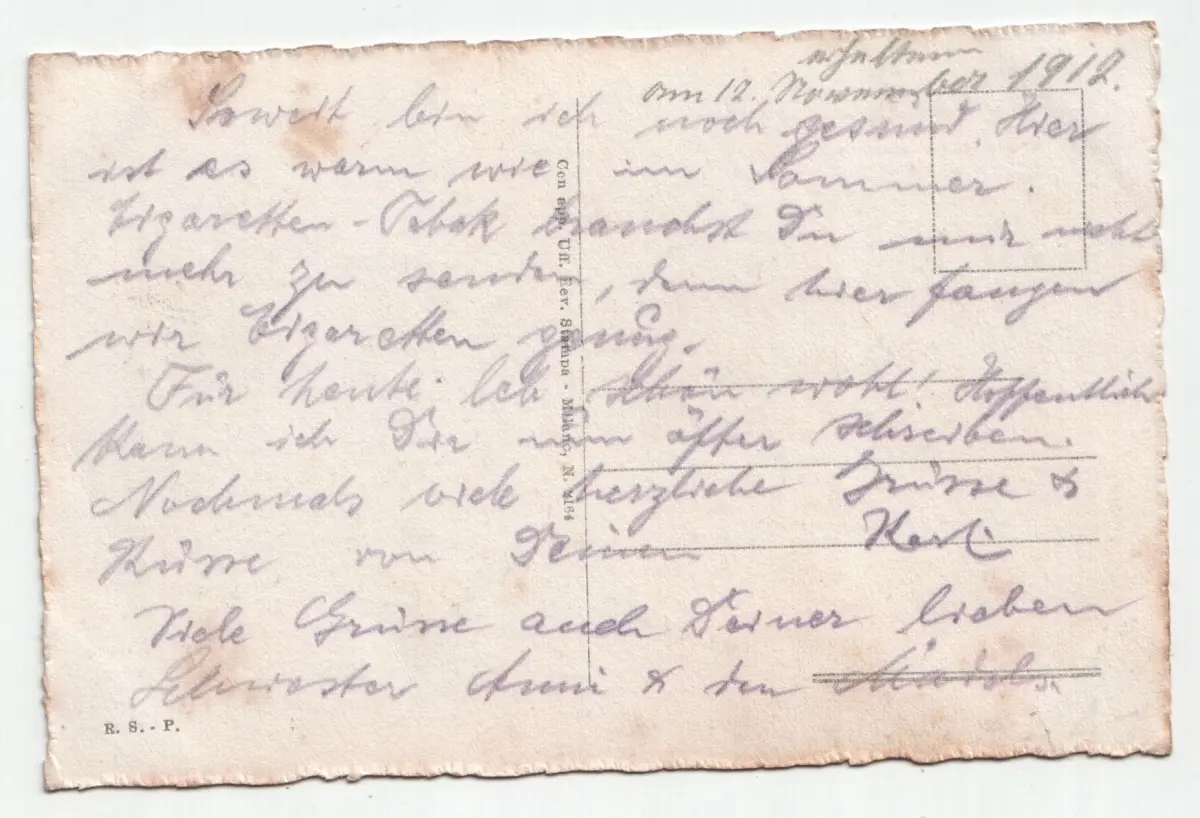 erhalten
am 12. November 1942.
Soweit bin ich noch gesund. Hier
ist es warm wie im Sommer.
Cigaretten-Tabak brauchst Du mir nicht
mehr zu senden, denn hier fangen
wir Cigaretten genug.
Für heute leb schön wohl! Hoffentlich
kann ich Dir nun öfter schreiben.
Nochmals viele herzliche Grüsse &
Küsse von Deinem Karl.
Viele Grüsse auch Deiner lieben
Schwester Anni & den Mädels.
Con app. Uff. Rev. Stampa - Milano, N. 2164
R. S. - P.